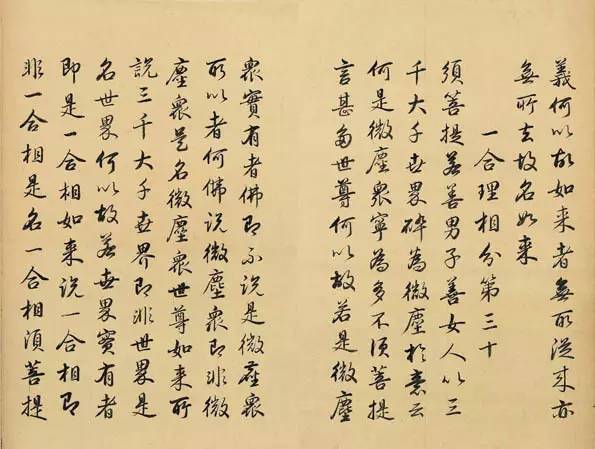 義何以故如来者無所從来亦
無所去故名如来
一合理相分第三十
須菩提若善男子善女人以三
千大千世界碎為微塵於意云
何是微塵衆寧為多不須菩提
言甚多世尊何以故若是微塵
衆實有者佛即不說是微塵衆
所以者何佛說微塵衆即非微
塵衆是名微塵衆世尊如来所
說三千大千世界即非世界是
名世界何以故若世界實有者
即是一合相如来說一合相即
非一合相是名一合相須菩提